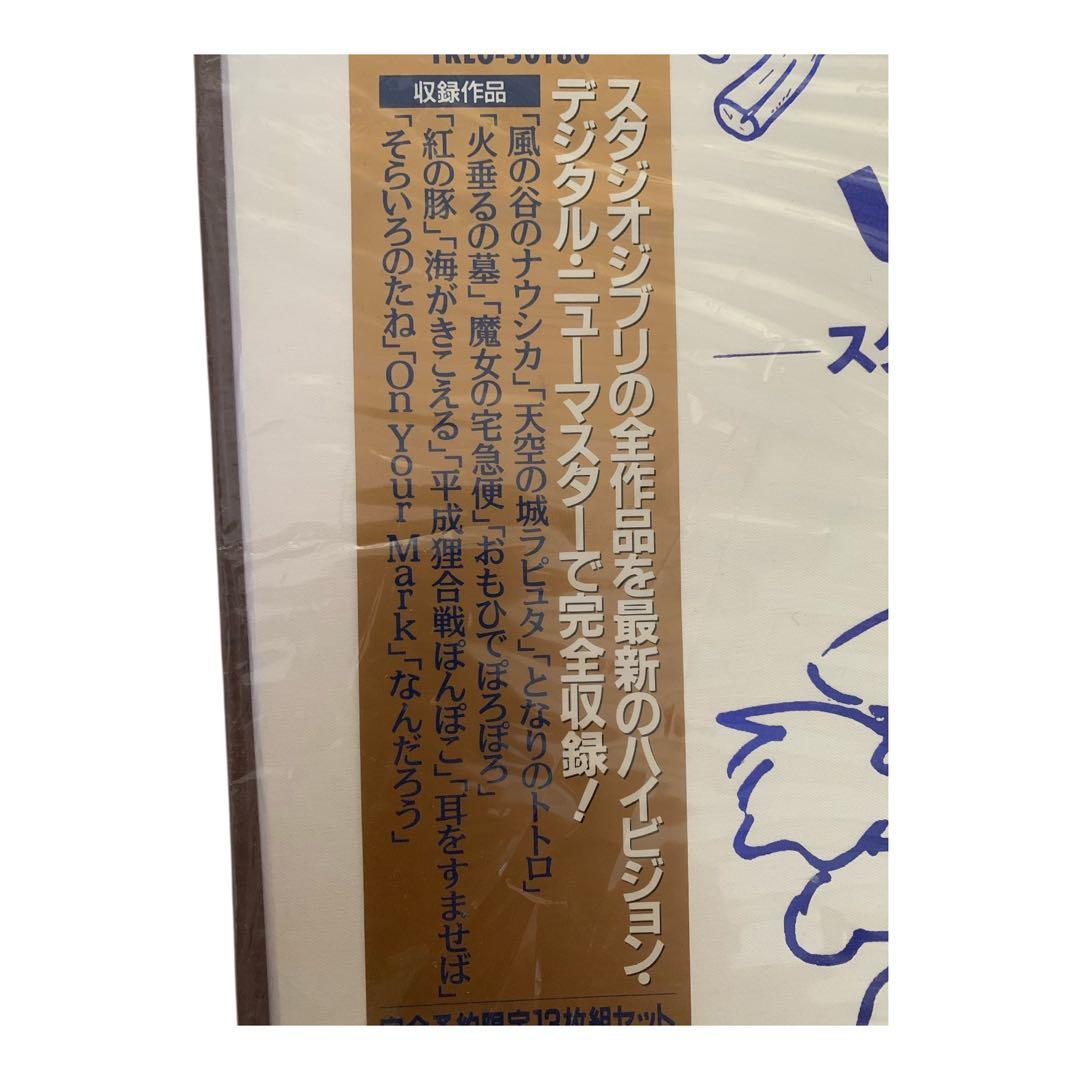 TKLO-50180
収録作品
スタジオジブリの全作品を最新のハイビジョン・
デジタル・ニューマスターで完全収録!
「風の谷のナウシカ」「天空の城ラピュタ」「となりのトトロ」
「火垂るの墓」「魔女の宅急便」「おもひでぽろぽろ」
「紅の豚」「海がきこえる」「平成狸合戦ぽんぽこ」「耳をすませば」
「そらいろのたね」「On Your Mark」「なんだろう」
完全予約限定13枚組セット
スタ